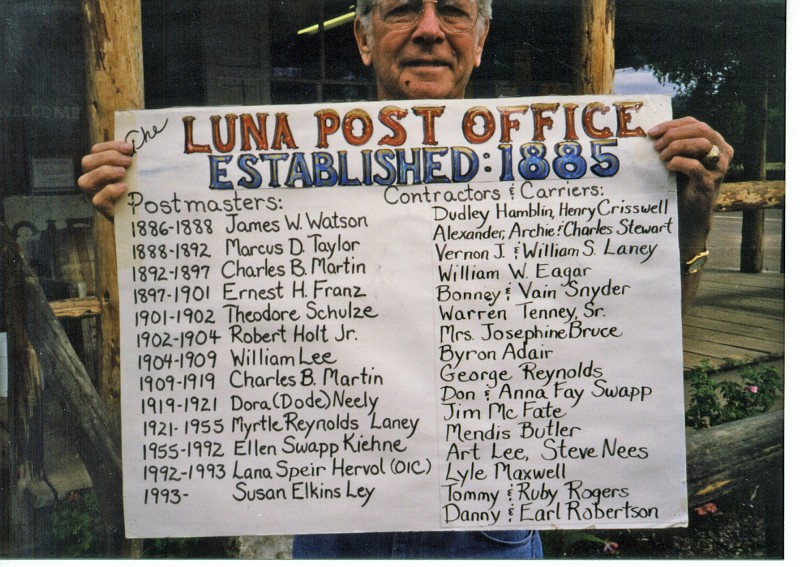 WELCOME
The LUNA POST OFFICE
ESTABLISHED: 1885
Postmasters:
1886-1888 James W. Watson
1888-1892 Marcus D. Taylor
1892-1897 Charles B. Martin
1897-1901 Ernest H. Franz
1901-1902 Theodore Schulze
1902-1904 Robert Holt Jr.
1904-1909 William Lee
1909-1919 Charles B. Martin
1919-1921 Dora (Dode) Neely
1921-1955 Myrtle Reynolds Laney
1955-1992 Ellen Swapp Kiehne
1992-1993 Lana Speir Hervol (OIC)
1993- Susan Elkins Ley
Contractors & Carriers:
Dudley Hamblin, Henry Crisswell
Alexander, Archie & Charles Stewart
Vernon J. & William S. Laney
William W. Eagar
Bonney & Vain Snyder
Warren Tenney, Sr.
Mrs. Josephine Bruce
Byron Adair
George Reynolds
Don & Anna Fay Swapp
Jim Mc Fate
Mendis Butler
Art Lee, Steve Nees
Lyle Maxwell
Tommy & Ruby Rogers
Danny & Earl Robertson